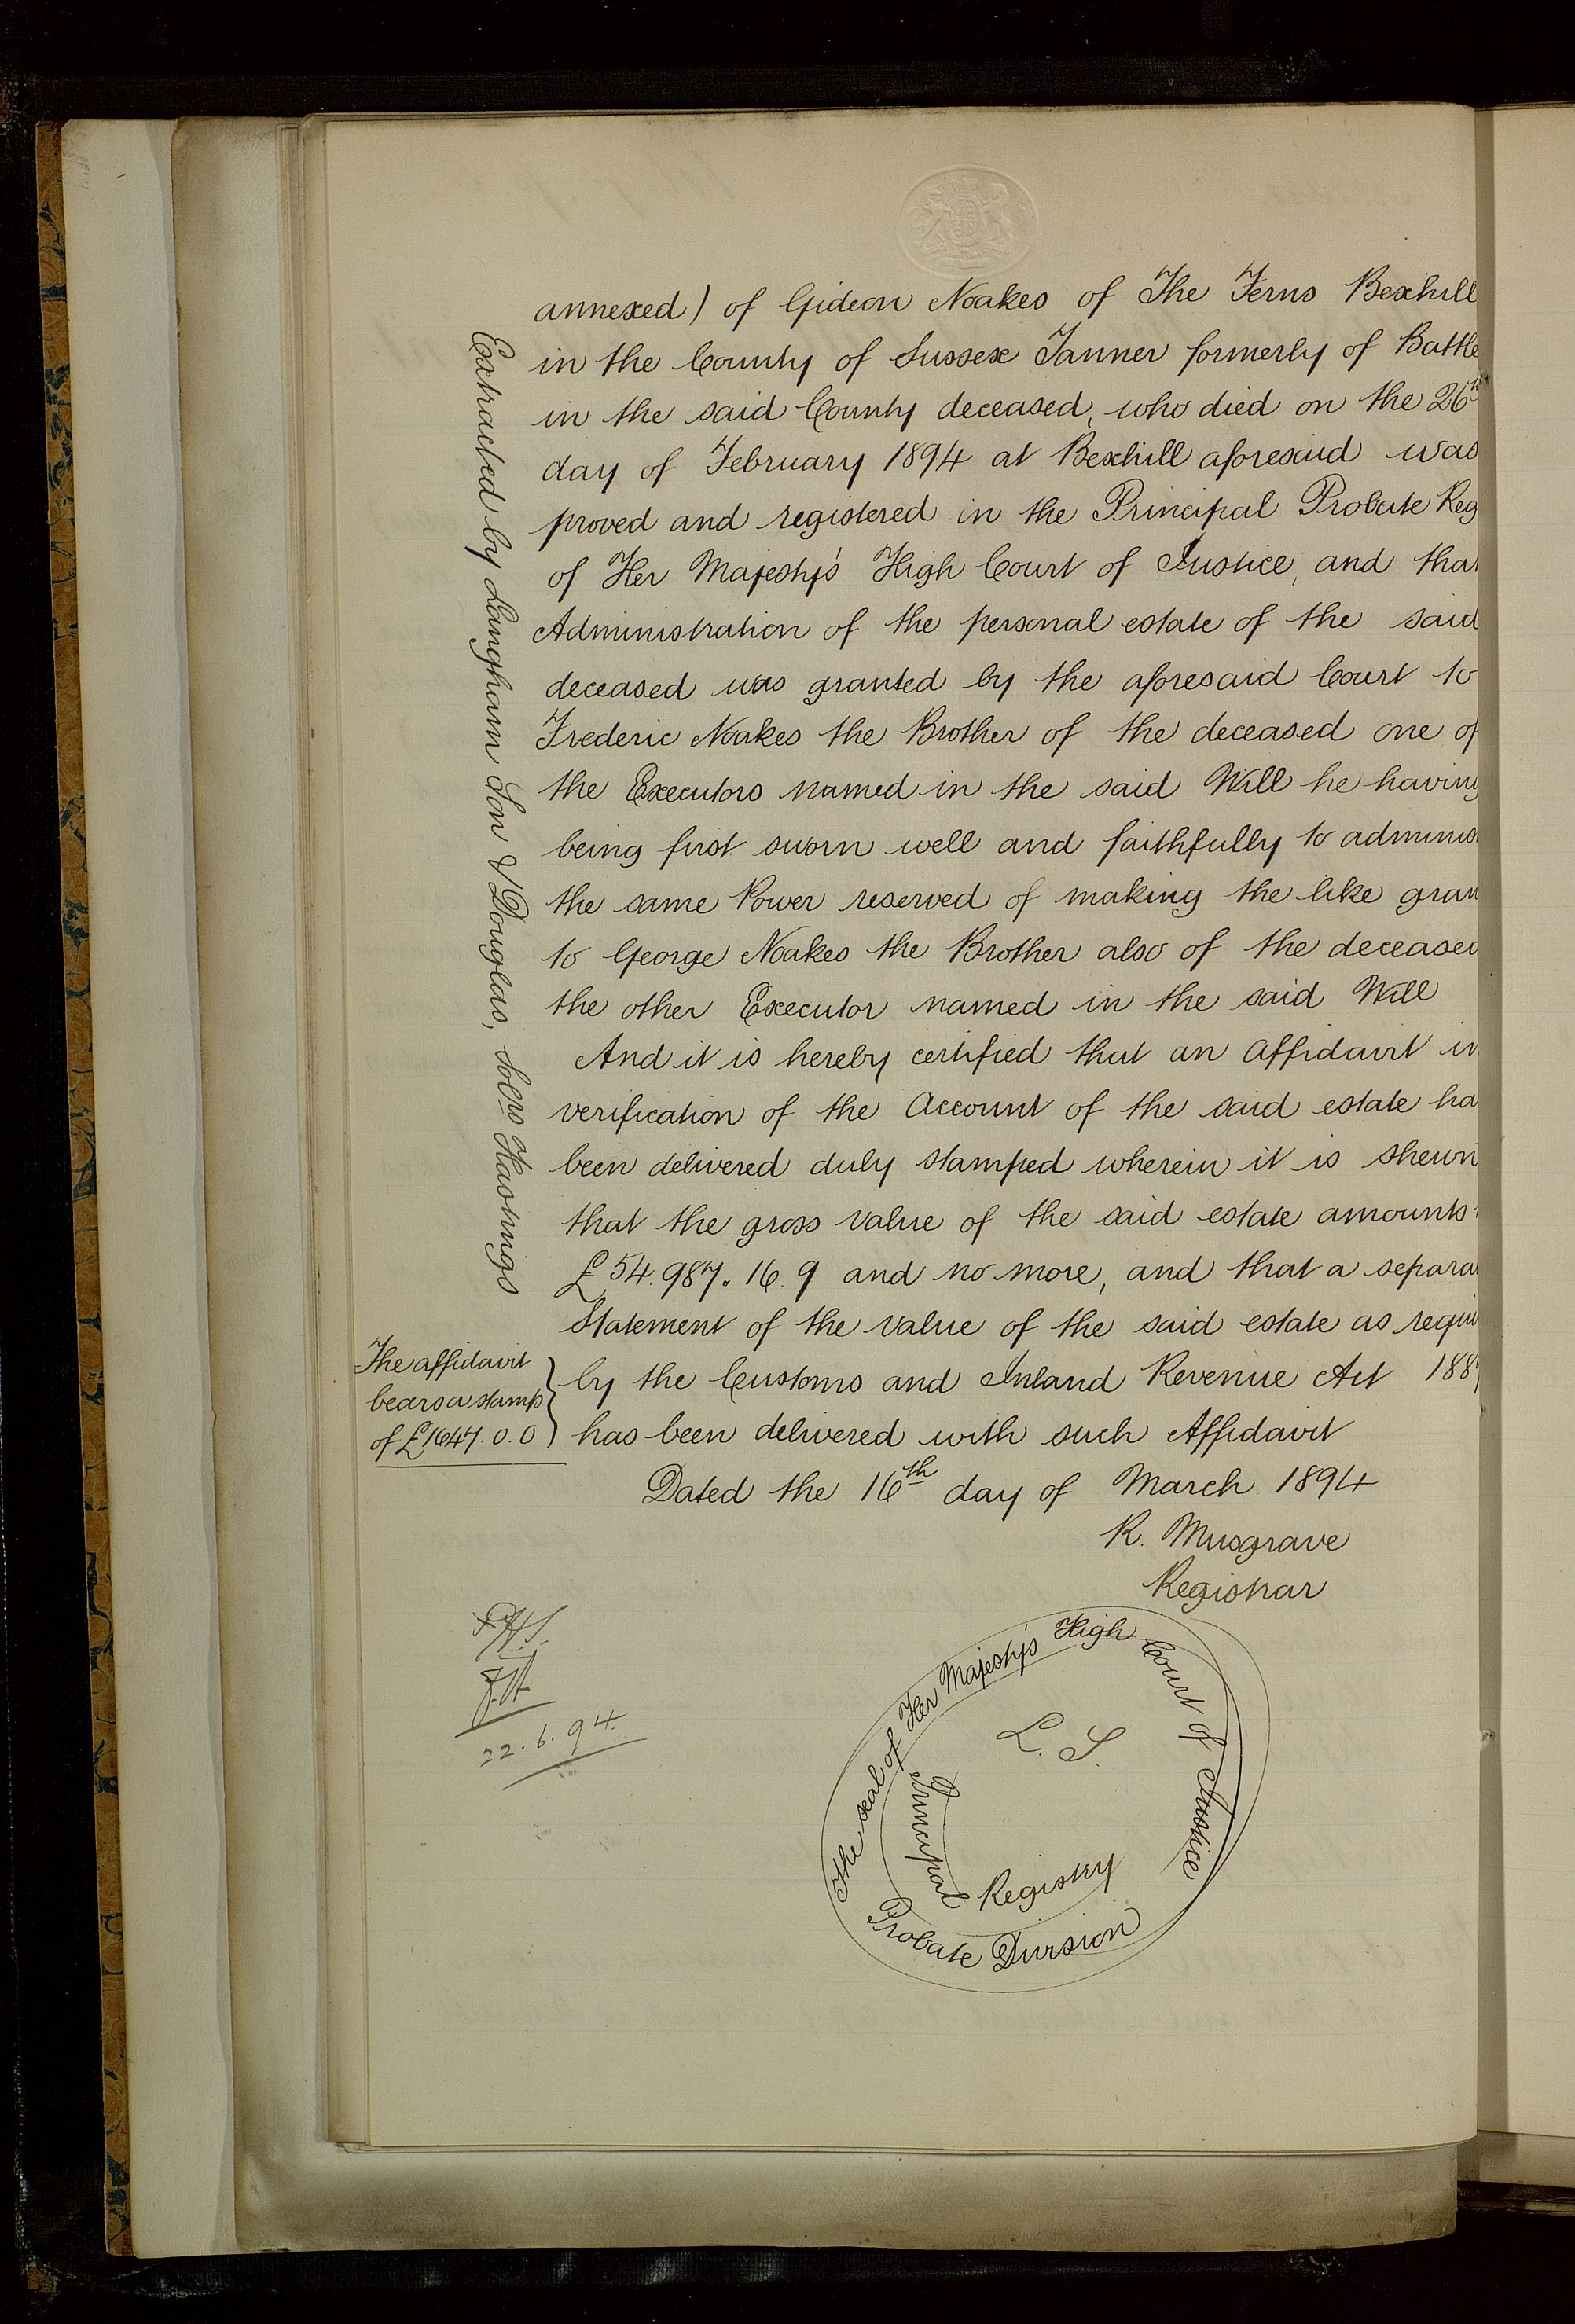 annexed) of Gideon Noakes of The Ferns Bexhill
in the County of Sussex Tanner formerly of Battle
in the said County deceased, who died on the 26th
day of February 1894 at Bexhill aforesaid was
proved and registered in the Principal Probate Reg
of Her Majesty's High Court of Justice, and that
Administration of the personal estate of the said
deceased was granted by the aforesaid Court to
Frederic Noakes the Brother of the deceased one of
the Executors named in the said Will he having
being first sworn well and faithfully to adminis
the same Power reserved of making the like gran
to George Noakes the Brother also of the deceased
the other Executor named in the said Will
And it is hereby certified that an Affidavit in
verification of the Account of the said estate ha
been delivered duly stamped wherein it is shewn
that the gross value of the said estate amounts
£54.987.. 16. 9 and no more, and that a separa
Statement of the value of the said estate as requi
by the Customs and Inland Revenue Act 188
has been delivered with such Affidavit
Dated the 16th day of March 1894
R. Musgrave
Registrar
Extracted by Langham Son & Douglas, Solrs Hastings
The affidavit
bears a stamp
of £1647. 0. 0
22. 6. 94.
The seal of Her Majesty's High Court of Justice
Probate Division
Principal Registry
L. S.